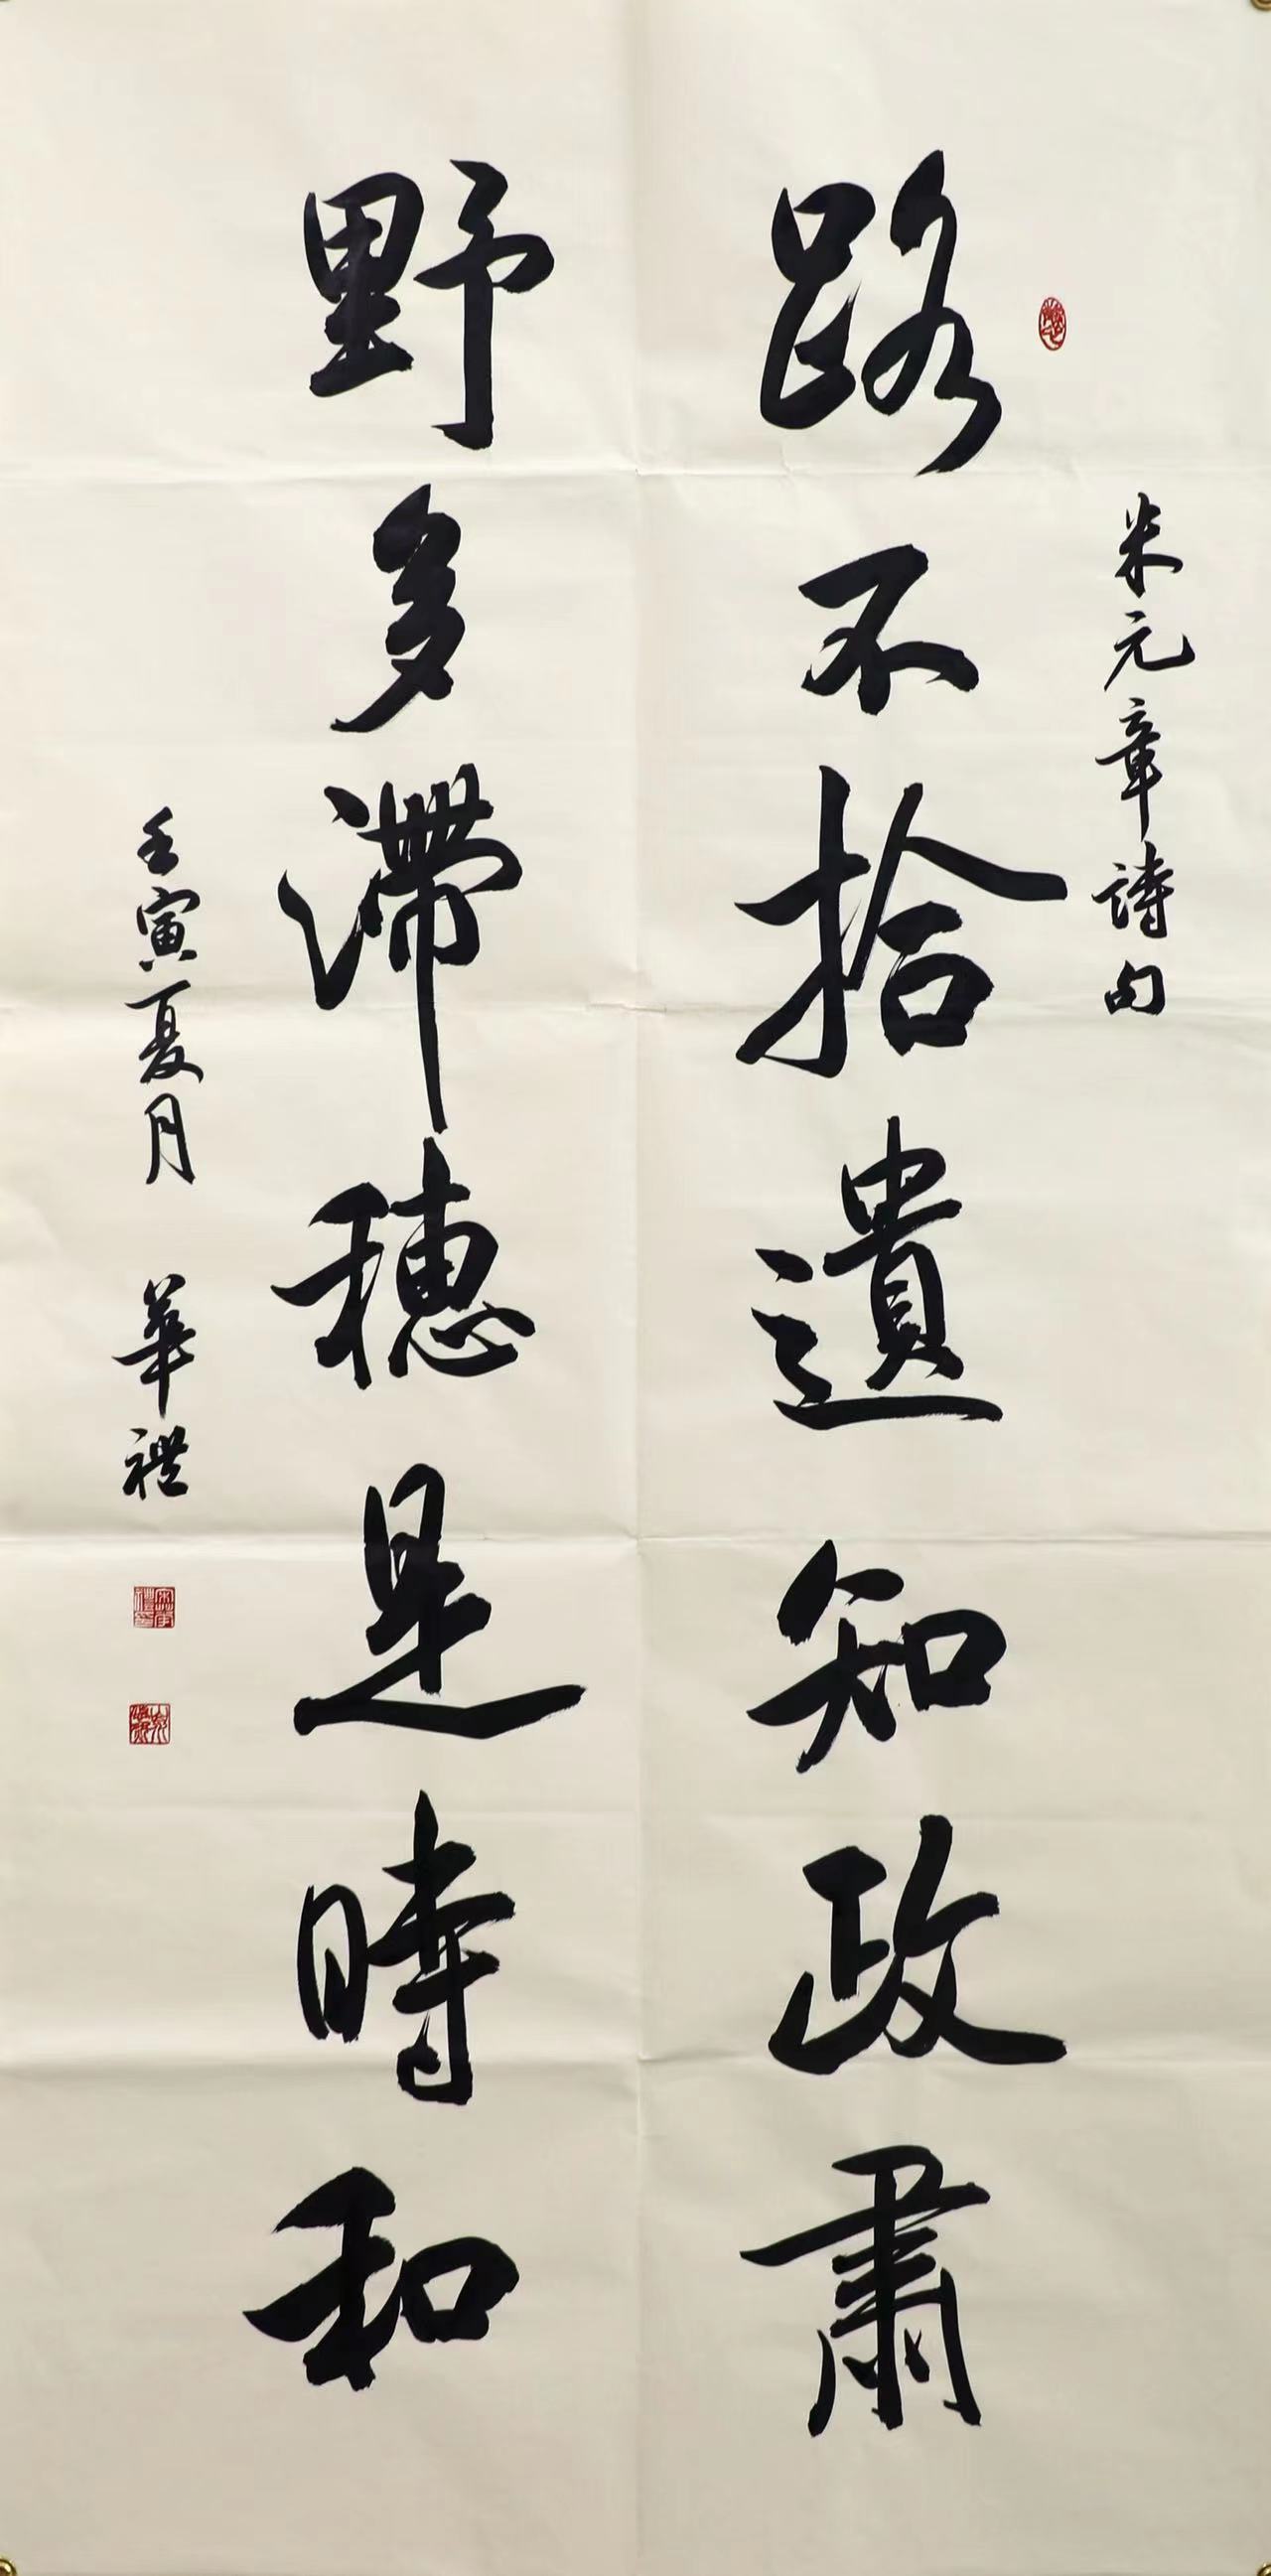 米元章詩句
路不拾遺知政肅
野多滯穗是時和
壬寅夏月 華禮